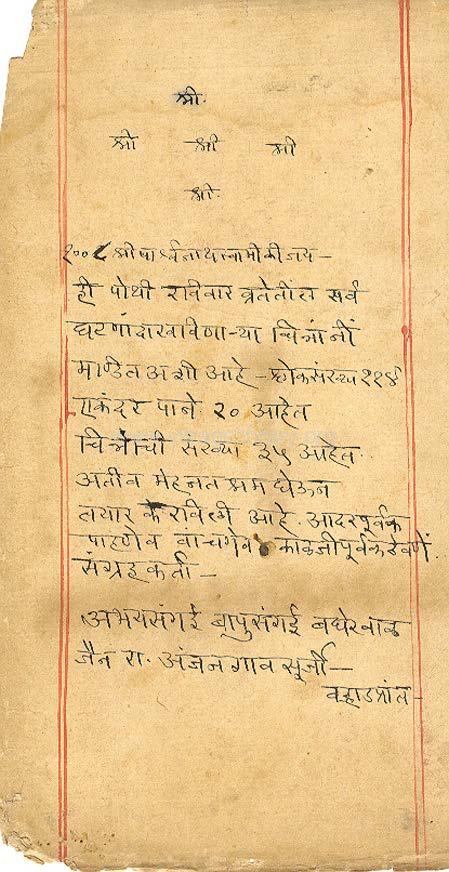 श्री.
श्री श्री श्री
श्री.
१००८ श्री पार्श्वनाथस्वामी की जय –
ही पोथी रविवार व्रतेतील सर्व
घटणां दाखविणाऱ्या चित्रांनीं
माण्डित अशी आहे – श्लोकसंख्या ११४
एकंदर पाने २० आहेत
चित्रांची संख्या ३५ आहेत.
अतीव मेहनत श्रम घेऊन
तयार केरविली आहे. आदरपूर्वक
पाहणेव वाचणेव काळजीपूर्वक ठेवणें
संग्रहकर्ता –
अभयसंगई बापुसंगई बघेरवाळ
जैन रा. अंजनगाव सूर्जी –
वऱ्हाडप्रांत –